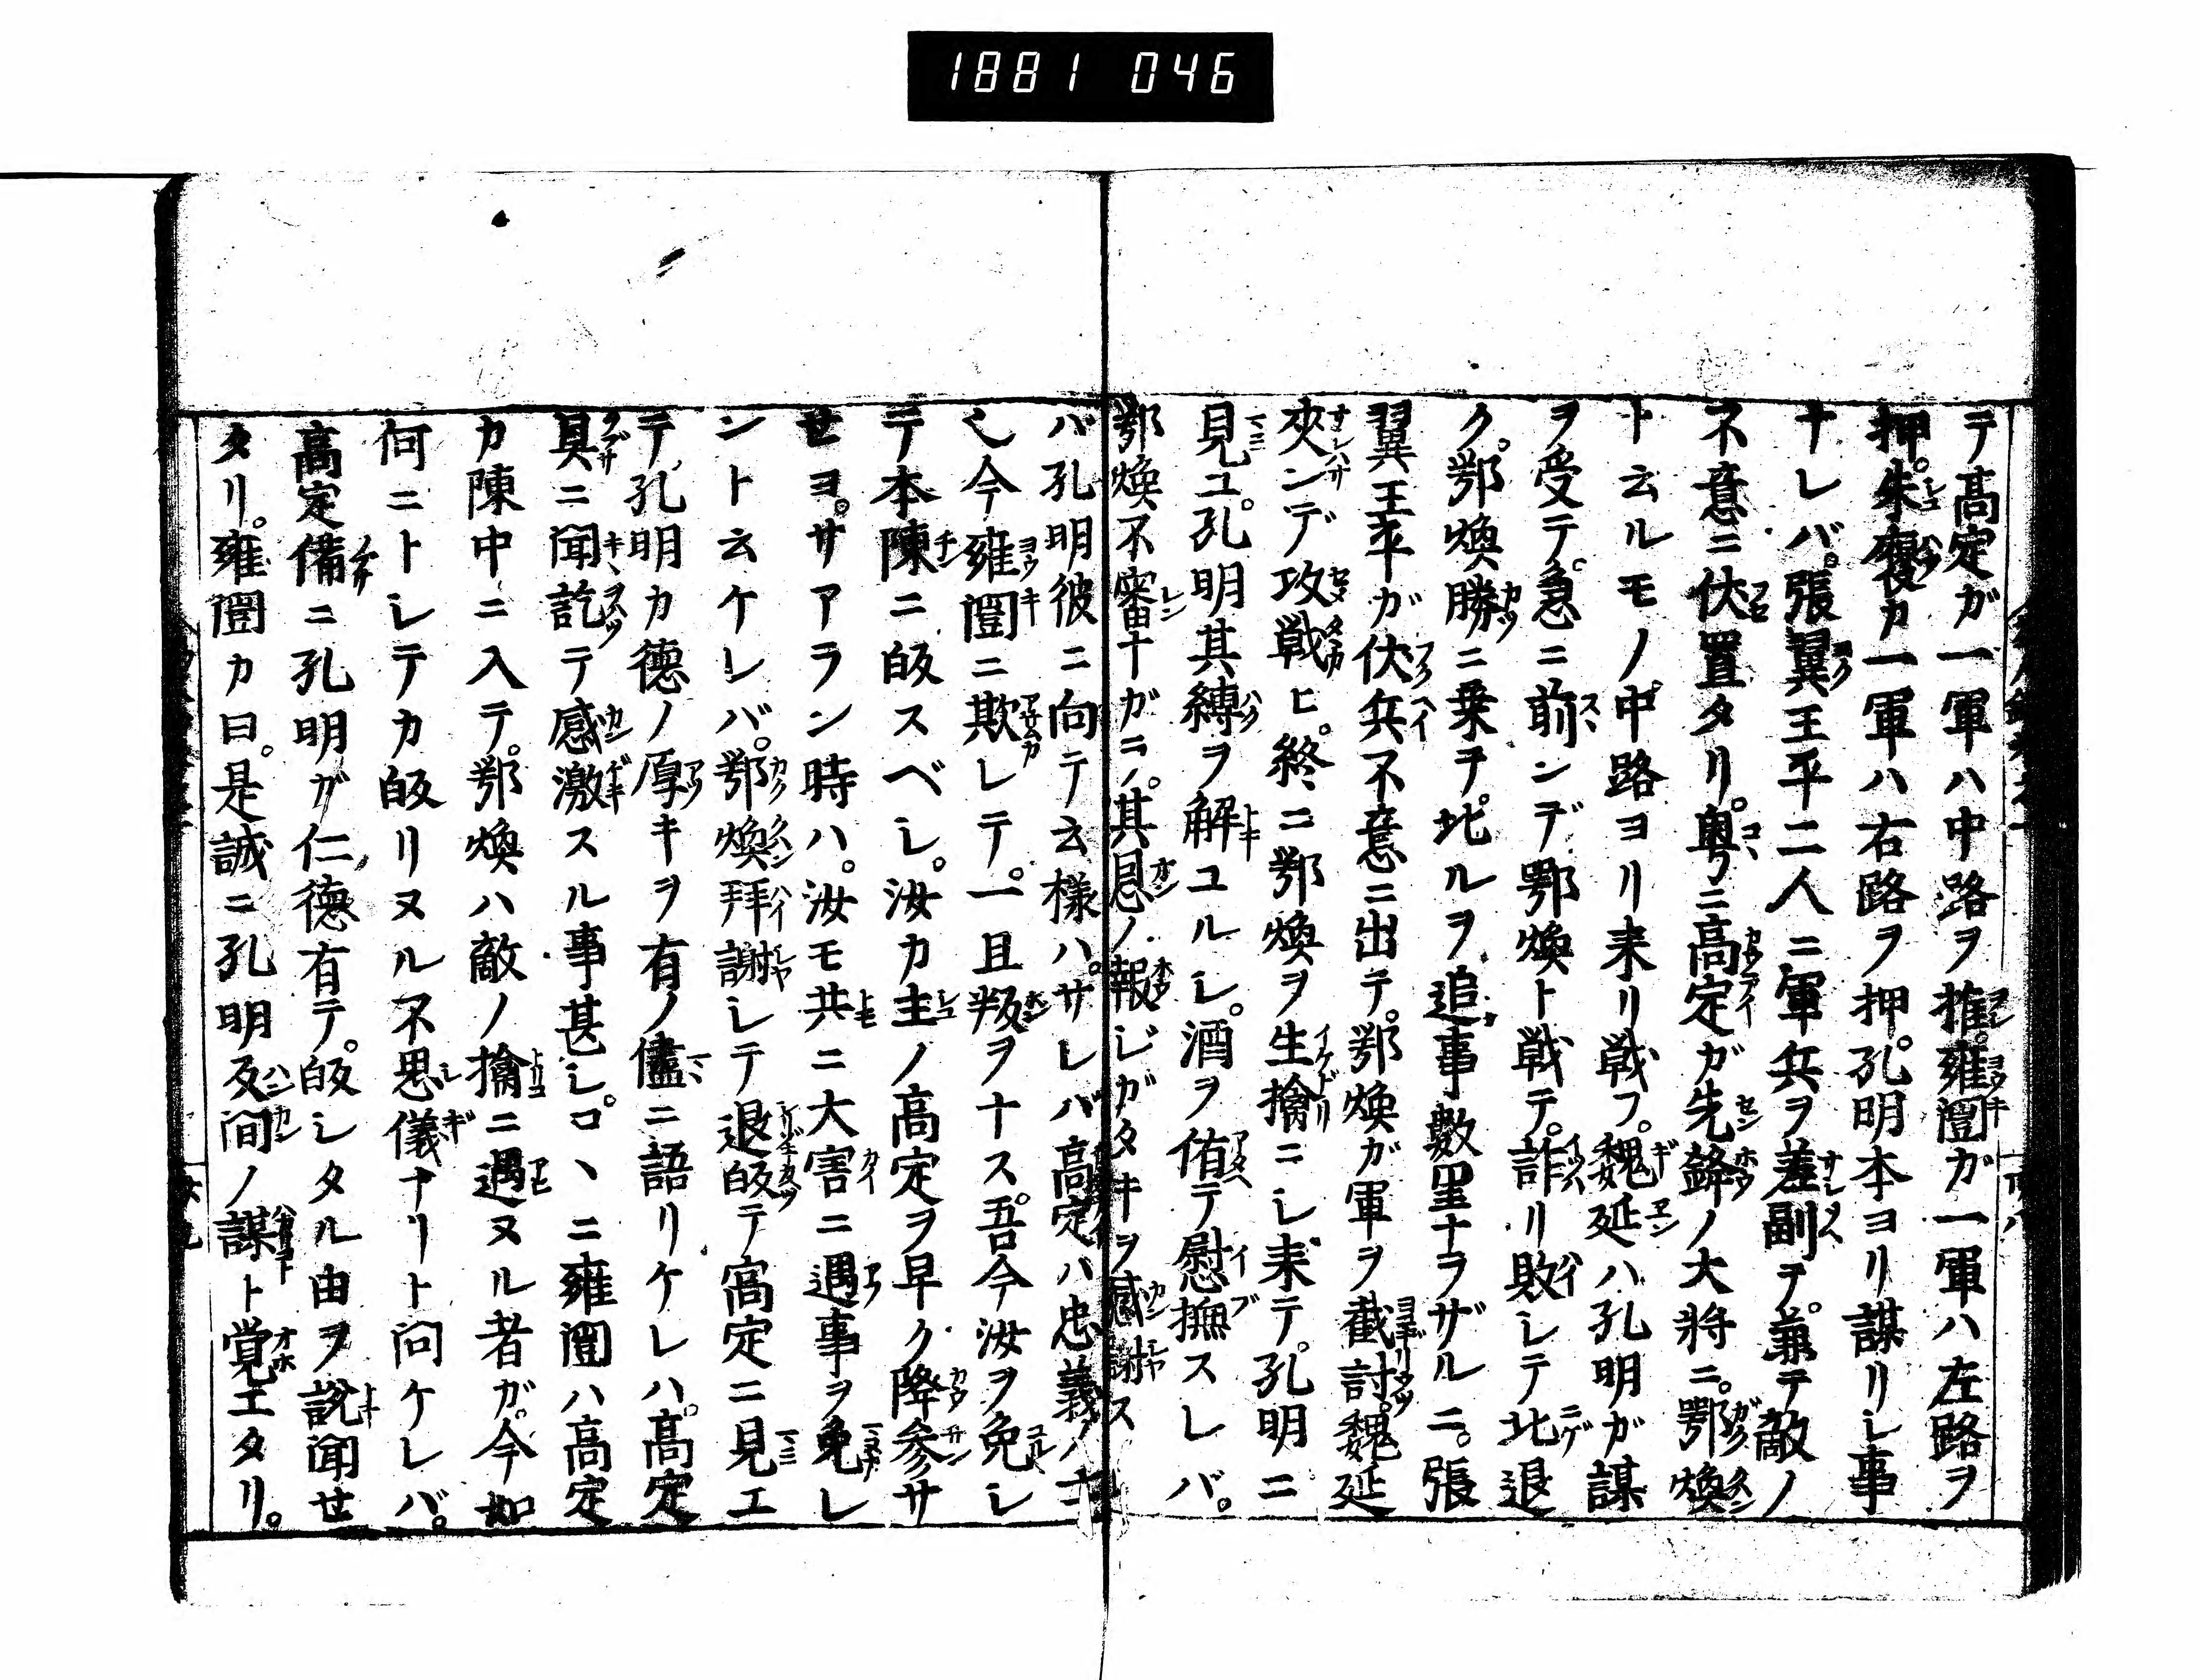 1881 046
テ高定ガ一軍ハ中路ヲ推。雍闓ガ一軍ハ左路ヲ
押。朱褒カ一軍ハ右路ヲ押。孔明本ヨリ謀リシ事
ナレバ。張翼王平二人ニ軍兵ヲ差副テ。兼テ敵ノ
不意ニ伏置タリ。粤ニ高定ガ先鋒ノ大将ニ。鄂煥
ト云ルモノ中路ヨリ来リ戦フ。魏延ハ孔明ガ謀
ヲ受テ。急ニ前ンデ鄂煥ト戦テ。詐リ敗シテ北退
ク。鄂煥勝ニ乗テ。北ルヲ追事數里ナラザルニ。張
翼王平ガ伏兵不意ニ出テ。鄂煥ガ軍ヲ截討。魏延
夾ンデ攻戦ヒ。終ニ鄂煥ヲ生擒ニシ来テ。孔明ニ
見ユ。孔明其縛ヲ解ユルシ。酒ヲ侑テ慰撫スレバ。
鄂煥不審ナガニ。其恩ノ報ジガタキヲ感謝ス
バ孔明彼ニ向テ云様ハ。サレバ高定ハ忠義ノ士ニ
シ今雍闓ニ欺レテ。一旦叛ヲナス。吾今汝ヲ免シ
テ本陳ニ皈スベシ。汝カ主ノ高定ヲ早ク降参サ
セヨ。サアラン時ハ。汝モ共ニ大害ニ遇事ヲ免レ
ント云ケレバ。鄂煥拜謝シテ退皈テ高定ニ見エ
テ。孔明カ德ノ厚キヲ有ノ儘ニ語リケレハ。高定
具ニ聞訖テ感激スル事甚シ。コヽニ雍闓ハ高定
カ陳中ニ入テ。鄂煥ハ敵ノ擒ニ遇ヌル者ガ。今如
何ニトシテカ皈リヌル不思儀ナリト问ケレバ。
高定備ニ孔明ガ仁德有テ。皈シタル由ヲ說聞セ
タリ。雍闓カ曰。是誠ニ孔明反间ノ謀ト覚エタリ。